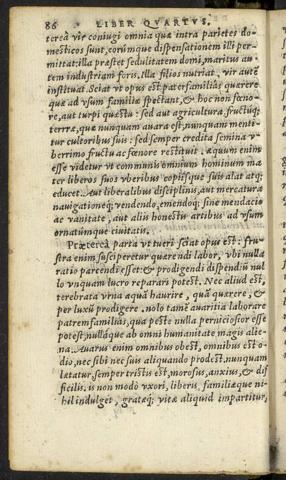 86 LIBER QVARTVS.
tereà vir coniugi omnia quæ intra parietes do-
mesticos sunt, eorúmque dispensationem illi per-
mittat: illa præstet sedulitatem domi, maritus au-
tem industriam foris. Illa filios nutriat, vir autē
instituat. Sciat vt opus est patersfamiliâs quærere
quæ ad vsum familiæ spectant, & hoc non fœno-
re, aut turpi quæstu: sed aut agricultura, fructúq;
terræ, quæ nunquam auara est, nunquam menti-
tur cultoribus suis: sed semper credita semina v-
berrimo fructu ac fœnore restituit. æquum enim
esse videtur vt communis omnium hominum ma
ter liberos suos vberibus copiísque suis alat atq;
educet. Aut liberalibus disciplinis, aut mercatura
nauigationéq; vendendo, emendóq; sine mendacio
ac vanitate, aut aliis honestis artibus ad vsum
ornatúmque ciuitatis.
Prætereà parta vt tueri sciat opus est: fru-
stra enim susciperetur quærendi labor, vbi nulla
ratio parcendi esset: & prodigendi dispendiū nul
lo vnquam lucro reparari potest. Nec aliud est,
terebrata vrna aquā haurire, quā quærere, &
per luxū prodigere. nolo tamē auaritia laborare
patremfamiliâs, qua peste nulla perniciosior esse
potest, nulláque ab omni humanitate magis alie-
na. Auarus enim omnibus obest, omnibus est o-
dio, nec sibi nec suis aliquando prodest, nunquam
lætatur, semper tristis est, morosus, anxius, & dif
ficilis. is non modò vxori, liberis, familiæque ni-
hil indulget, gratéq; vitæ aliquid impartitur,